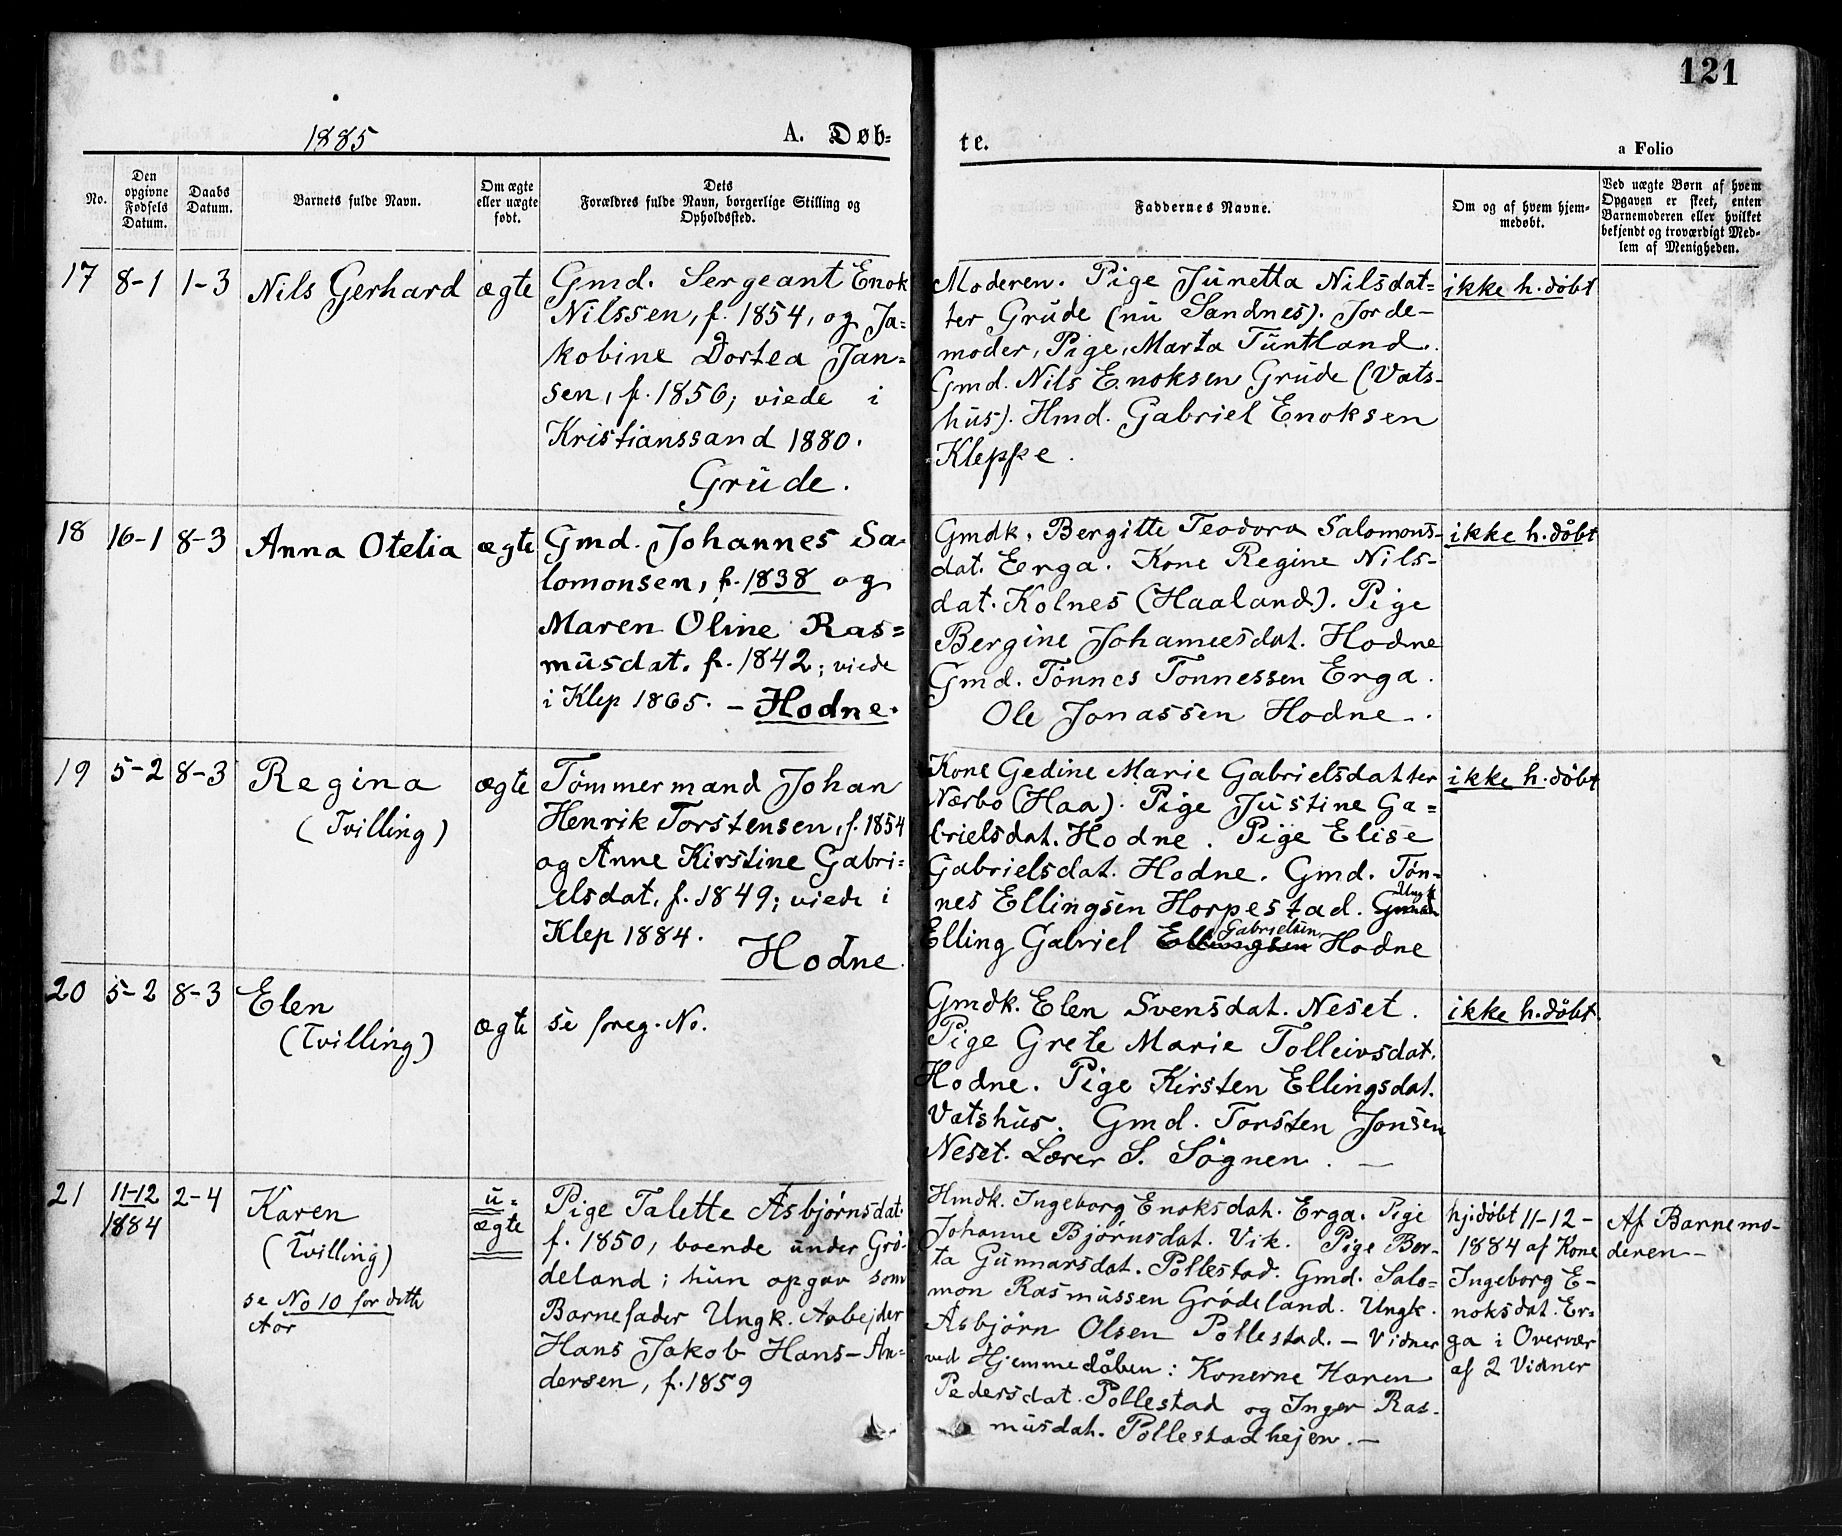 121
1885
A. Døb-
te.
a Folio
No.
Den opgivne Fødsels Datum.
Daabs Datum.
Barnets fulde Navn.
Om ægte eller uægte født.
Dets
Forældres fulde Navn, borgerlige Stilling og
Opholdssted.
Faddernes Navne.
Om og af hvem hjem-
medøbt.
Ved uægte Børn af hvem
Opgaven er skeet, enten
Barnemoderen eller hvilket
bekjendt og troværdigt Med-
lem af Menigheden.
17 8-1 1-3 Nils Gerhard ægte
Gmd. Sergeant Enok
Nilssen, f. 1854, og Ja=
kobine Dortea Jan=
sen, f. 1856; viede i
Kristianssand 1880.
Grude.
Moderen. Pige Junetta Nilsdat=
ter Grude (nu Sandnes). Jorde-
moder, Pige, Marta Tuntland.
Gmd. Nils Enoksen Grude (Vats-
hus). Hmd. Gabriel Enoksen
Kleppe.
ikke h. døbt
18 16-1 8-3 Anna Otelia ægte
Gmd. Johannes Sa-
lomonsen, f. 1838 og
Maren Oline Ras=
musdat. f. 1842; viede
i Klep 1865. - Hodne.
Gmdk. Bergitte Teodora Salomons-
dat. Erga. Kone Regine Nils-
dat. Kolnes (Haaland). Pige
Bergine Johannesdat. Hodne
Gmd. Tønnes Tønnessen Erga.
Ole Jonassen Hodne.
ikke h. døbt
19 5-2 8-3 Regina
(Tvilling)
ægte
Tømmermand Johan
Henrik Torstensen, f. 1854
og Anne Kirstine Gabri-
elsdat, f. 1849; viede i
Klep 1884.
Hodne.
Kone Gedine Marie Gabrielsdatter
Nærbo (Haa). Pige Justine Ga=
brielsdat. Hodne. Pige Elise
Gabrielsdat. Hodne. Gmd. Tøn-
nes Ellingsen Horpestad. Ungk
Elling Gabriel Ellingsen Gabrielsen Hodne
ikke h. døbt
20 5-2 8-3 Elen
(Tvilling)
ægte
se foreg. No.
Gmdk. Elen Svensdat. Neset.
Pige Grete Marie Tolleivsdat.
Hodne. Pige Kirsten Ellingsdat.
Vatshus. Gmd. Torsten Jonsen
Neset. Lærer S. Søgnen. -
ikke h. døbt.
21 11-12
1884
2-4 Karen
(Tvilling)
se No 10 for dette
Aar
u=
ægte
Pige Talette Asbjørnsdat.
f. 1850, boende under Grø-
deland; hun opgav som
Barnefader Ungk. Arbejder
Hans Jakob Hans-An-
dersen, f. 1859
Hmdk. Ingeborg Enoksdat. Erga. Pige
Johanne Bjørnsdat. Vik. Pige Ber-
ta Gunnarsdat. Pollestad. Gmd. Salo-
mon Rasmussen Grødeland. Ungk.
Asbjørn Olsen Pollestad. - Vidner
ved Hjemmedåben: Konerne Karen
Pedersdat. Pollestad og Inger Ras-
musdat. Pollestadhejen. -
hj.døbt 11-12-
1884 af Kone
Ingeborg E-
noksdat. Er-
ga i Overvær
af 2 Vidner
Af Barnemo-
deren -